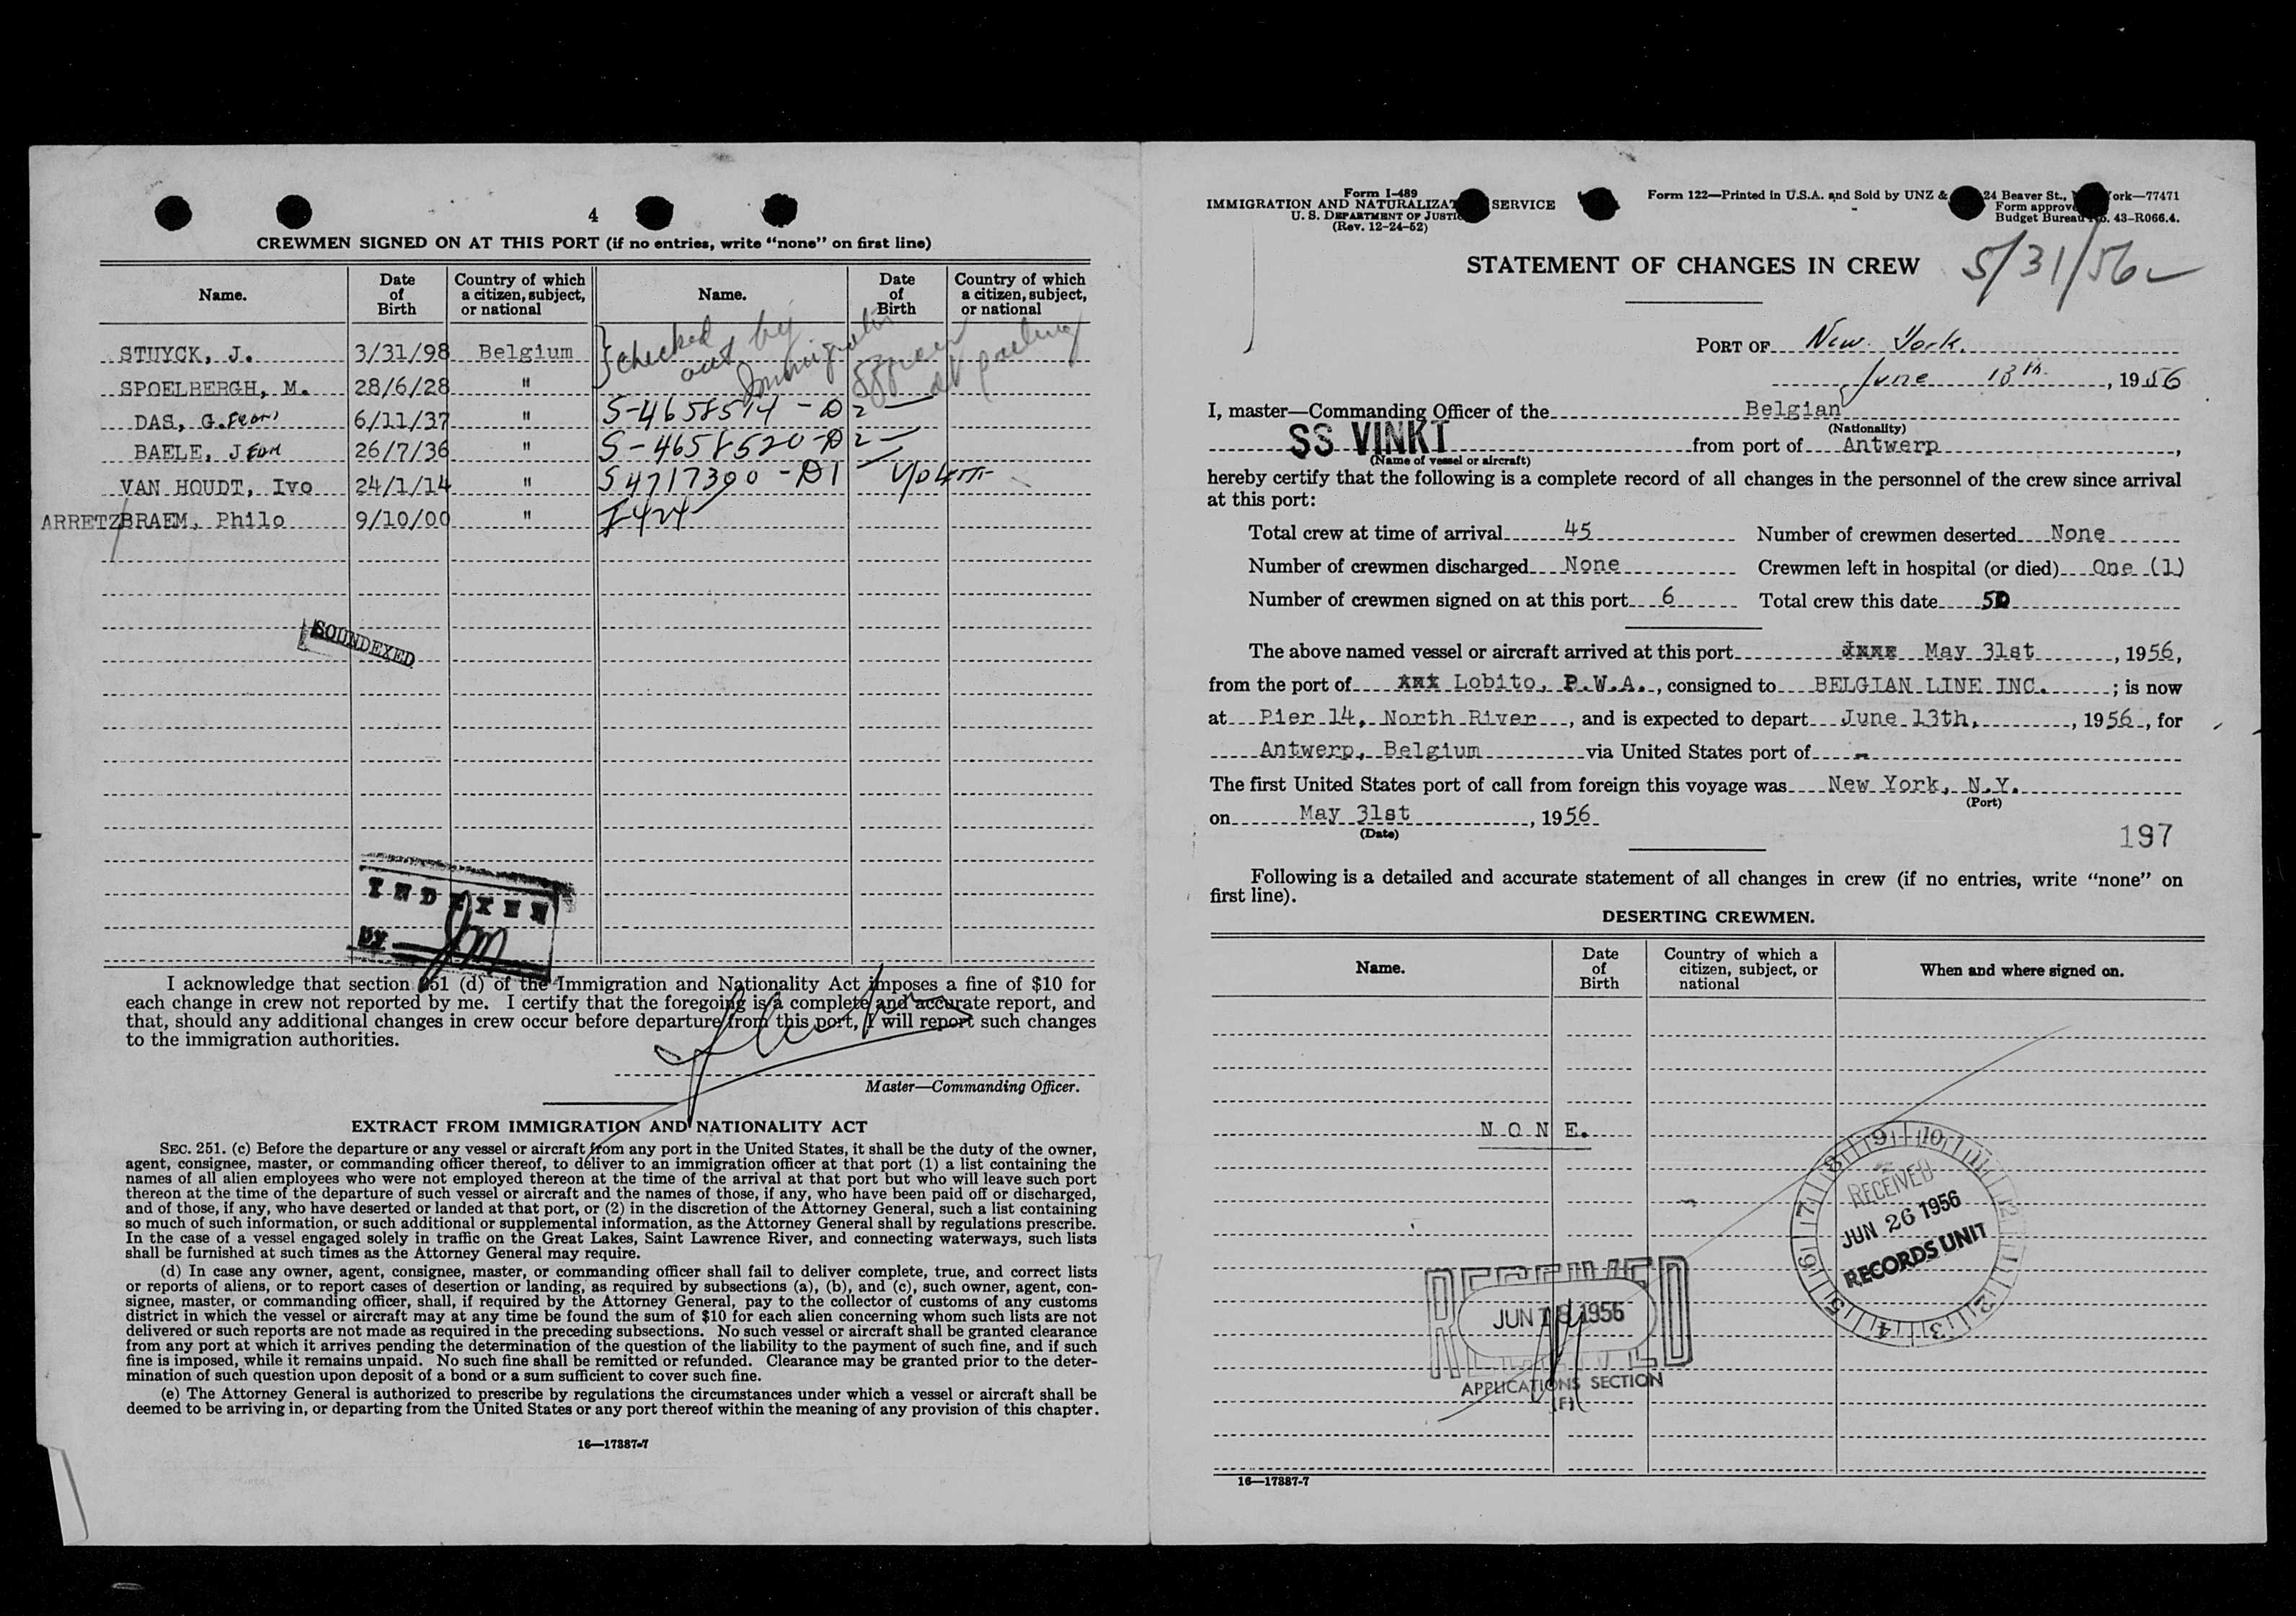 4
CREWMEN SIGNED ON AT THIS PORT (if no entries, write "none" on first line)
Name. Date of Birth Country of which a citizen, subject, or national Name. Date of Birth Country of which a citizen, subject, or national
STUYCK, J. 3/31/98 Belgium checked out by Immigration officer at pooling
SPOELBERGH, M. 28/6/28 "
DAS, G. 6/11/37 " S-4658514-D2
BAELE, Jean 26/7/36 " S-4658520-D2
VAN HOUDT, Ivo 24/1/14 " S4717300-D1
ARRETZ/BRAEM, Philo 9/10/00 " I-424
SOUNDEXED
INDEXED
BY
I acknowledge that section 251 (d) of the Immigration and Nationality Act imposes a fine of $10 for
each change in crew not reported by me. I certify that the foregoing is a complete and accurate report, and
that, should any additional changes in crew occur before departure from this port, I will report such changes
to the immigration authorities.
Master—Commanding Officer.
EXTRACT FROM IMMIGRATION AND NATIONALITY ACT
SEC. 251. (c) Before the departure or any vessel or aircraft from any port in the United States, it shall be the duty of the owner,
agent, consignee, master, or commanding officer thereof, to deliver to an immigration officer at that port (1) a list containing the
names of all alien employees who were not employed thereon at the time of the arrival at that port but who will leave such port
thereon at the time of the departure of such vessel or aircraft and the names of those, if any, who have been paid off or discharged,
and of those, if any, who have deserted or landed at that port, or (2) in the discretion of the Attorney General, such a list containing
so much of such information, or such additional or supplemental information, as the Attorney General shall by regulations prescribe.
In the case of a vessel engaged solely in traffic on the Great Lakes, Saint Lawrence River, and connecting waterways, such lists
shall be furnished at such times as the Attorney General may require.
(d) In case any owner, agent, consignee, master, or commanding officer shall fail to deliver complete, true, and correct lists
or reports of aliens, or to report cases of desertion or landing, as required by subsections (a), (b), and (c), such owner, agent, con-
signee, master, or commanding officer, shall, if required by the Attorney General, pay to the collector of customs of any customs
district in which the vessel or aircraft may at any time be found the sum of $10 for each alien concerning whom such lists are not
delivered or such reports are not made as required in the preceding subsections. No such vessel or aircraft shall be granted clearance
from any port at which it arrives pending the determination of the question of the liability to the payment of such fine, and if such
fine is imposed, while it remains unpaid. No such fine shall be remitted or refunded. Clearance may be granted prior to the deter-
mination of such question upon deposit of a bond or a sum sufficient to cover such fine.
(e) The Attorney General is authorized to prescribe by regulations the circumstances under which a vessel or aircraft shall be
deemed to be arriving in, or departing from the United States or any port thereof within the meaning of any provision of this chapter.
16—17387-7
Form I-489
IMMIGRATION AND NATURALIZAT SERVICE
U. S. DEPARTMENT OF JUSTIC
(Rev. 12-24-52)
Form 122—Printed in U.S.A. and Sold by UNZ & 24 Beaver St., ork—77471
Form approve
Budget Bureau No. 43-R066.4.
STATEMENT OF CHANGES IN CREW
5/31/56
PORT OF New York.
June 13th. , 1956
I, master—Commanding Officer of the Belgian
(Nationality)
SS VINKT from port of Antwerp ,
(Name of vessel or aircraft)
hereby certify that the following is a complete record of all changes in the personnel of the crew since arrival
at this port:
Total crew at time of arrival 45 Number of crewmen deserted None
Number of crewmen discharged None Crewmen left in hospital (or died) One (1)
Number of crewmen signed on at this port 6 Total crew this date 50
The above named vessel or aircraft arrived at this port May 31st , 1956,
from the port of Lobito, P.W.A. , consigned to BELGIAN LINE INC. ; is now
at Pier 14, North River , and is expected to depart June 13th, , 1956 , for
Antwerp, Belgium via United States port of -
The first United States port of call from foreign this voyage was New York, N.Y.
(Port)
on May 31st , 1956
(Date)
197
Following is a detailed and accurate statement of all changes in crew (if no entries, write "none" on
first line).
DESERTING CREWMEN.
Name. Date of Birth Country of which a citizen, subject, or national When and where signed on.
N O N E.
9 10 11 12 1 2 3 4 5 6 7 8
RECEIVED
JUN 26 1956
RECORDS UNIT
RECEIVED
JUN 18 1956
RECEIVED
APPLICATIONS SECTION
(F)
16—17387-7